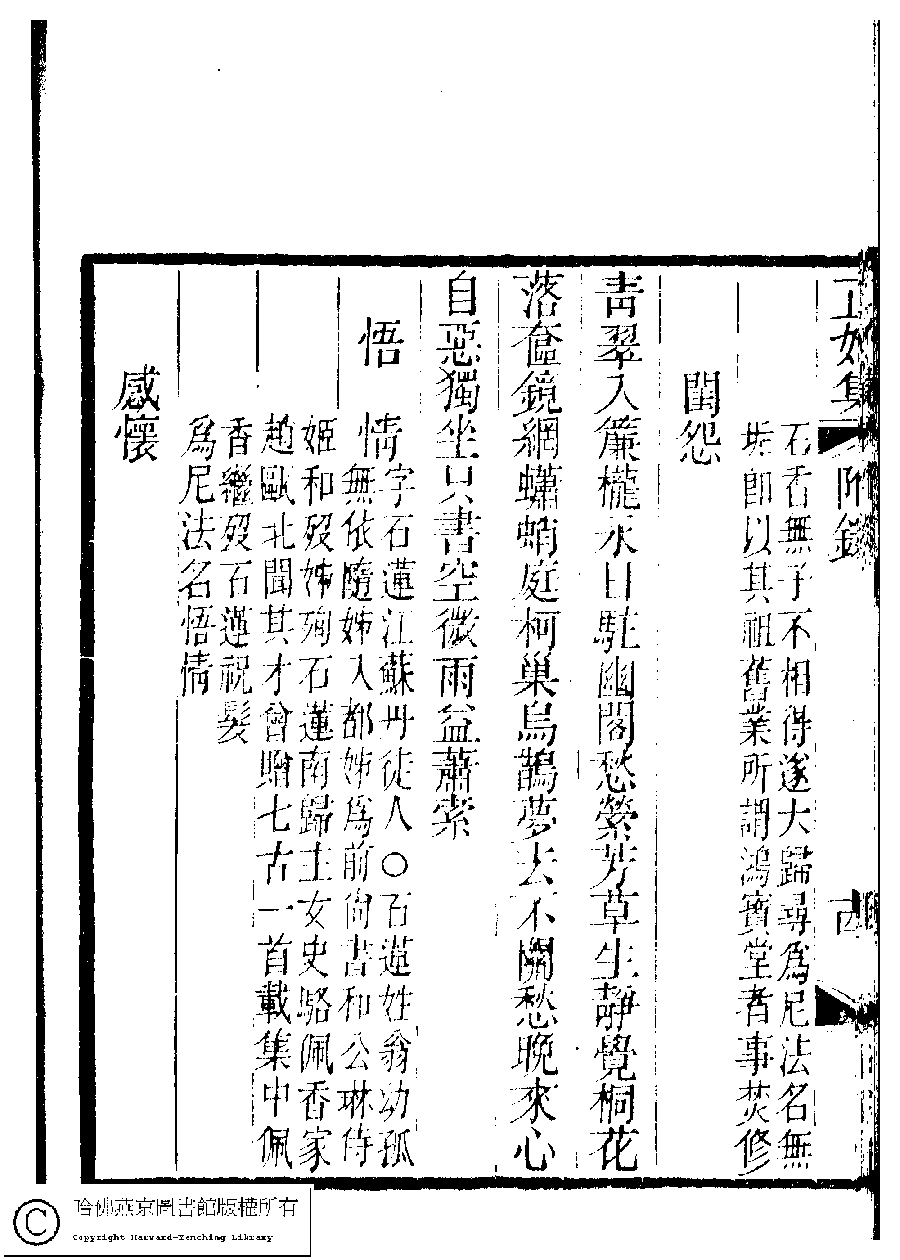 正始集 附錄
石香無子不相得遂大歸尋為尼法名無
垢即以其祖舊業所謂鴻寶堂者事焚修
閨怨
青翠入簾櫳永日駐幽閣愁縈芳草生靜覺桐花
落奩鏡網蠨蛸庭柯巢烏鵲夢去不關愁晚來心
自惡獨坐只書空微雨益蕭索
悟情字石蓮江蘇丹徒人〇石蓮姓翁幼孤
無依隨姊入都姊為前尚書和公琳侍
姬和歿姊殉石蓮南歸主女史駱佩香家
趙甌北聞其才會贈七古一首載集中佩
香繼歿石蓮祝髮
為尼法名悟情
感懷
哈佛燕京圖書館版權所有
Copyright Harvard-Yenching Library